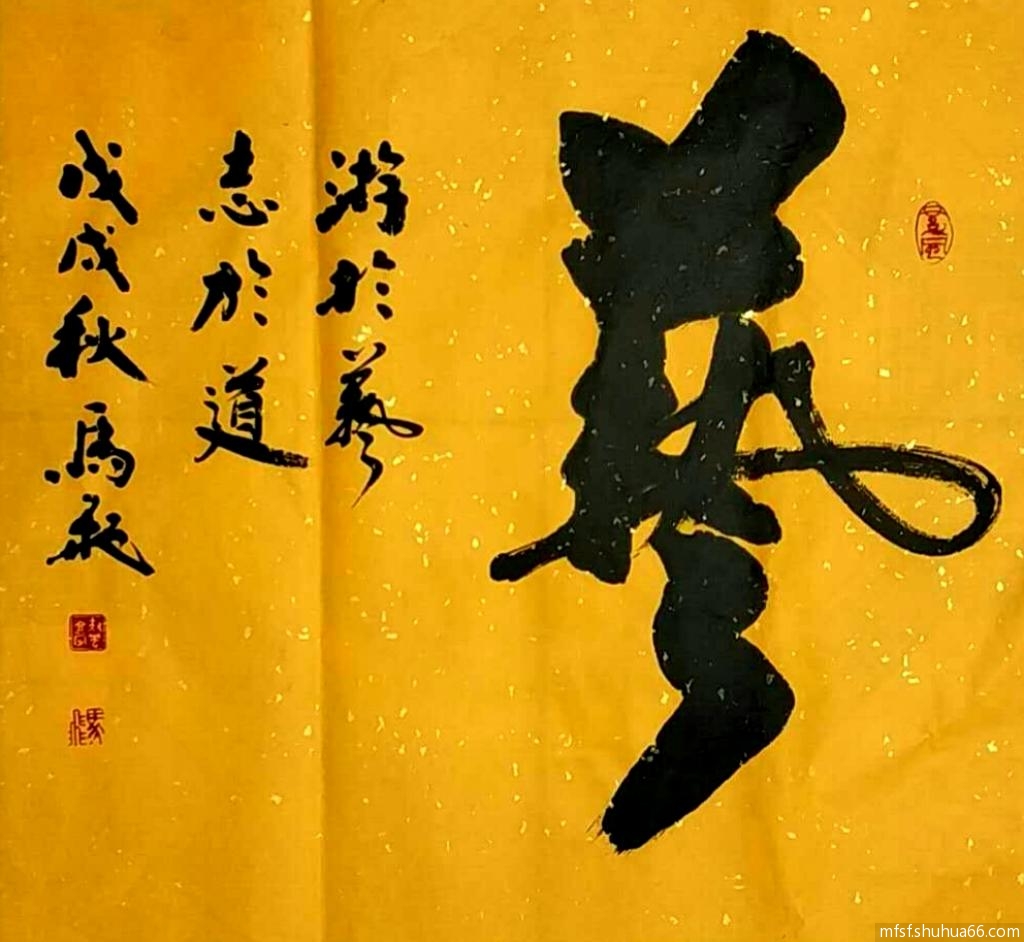 藝
游於藝
志於道
戊戌秋馬
mfsf.shuhua66.com